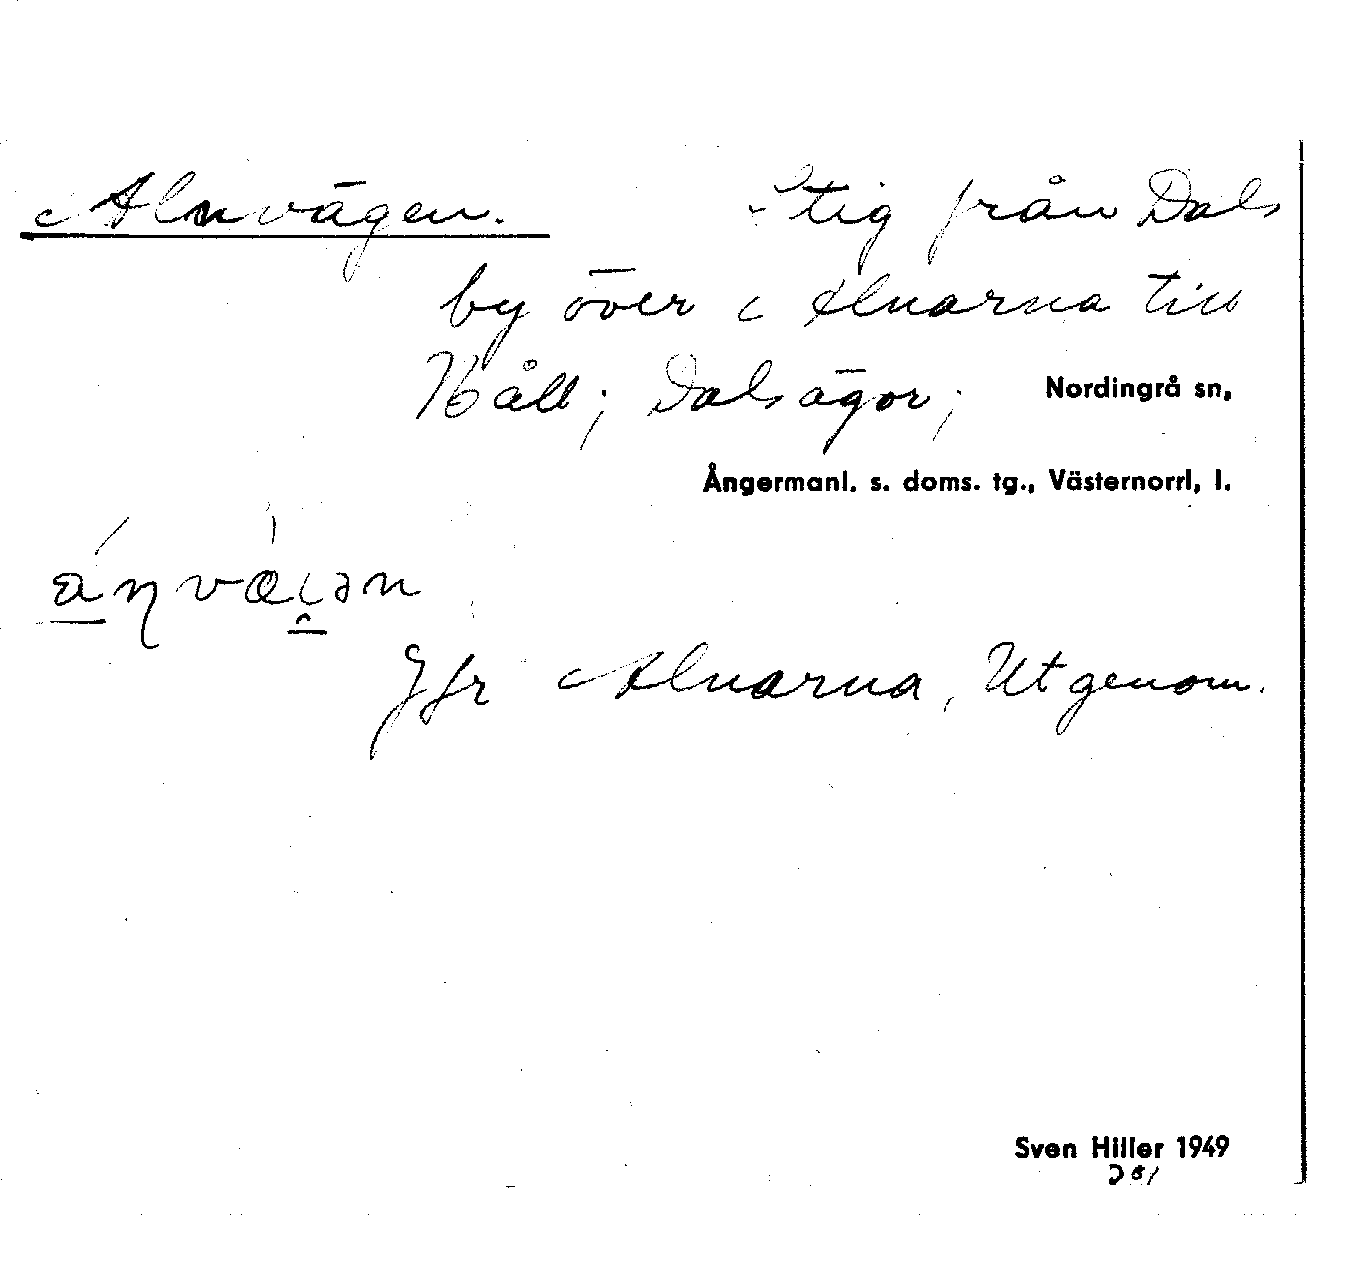 Alnvägen. Stig från Dals
by över Alnarna till
Håll; Dals ägor; Nordingrå sn,
Ångermanl. s. doms. tg., Västernorrl, l.
Jfr Alnarna, Utgenom.
Sven Hiller 1949